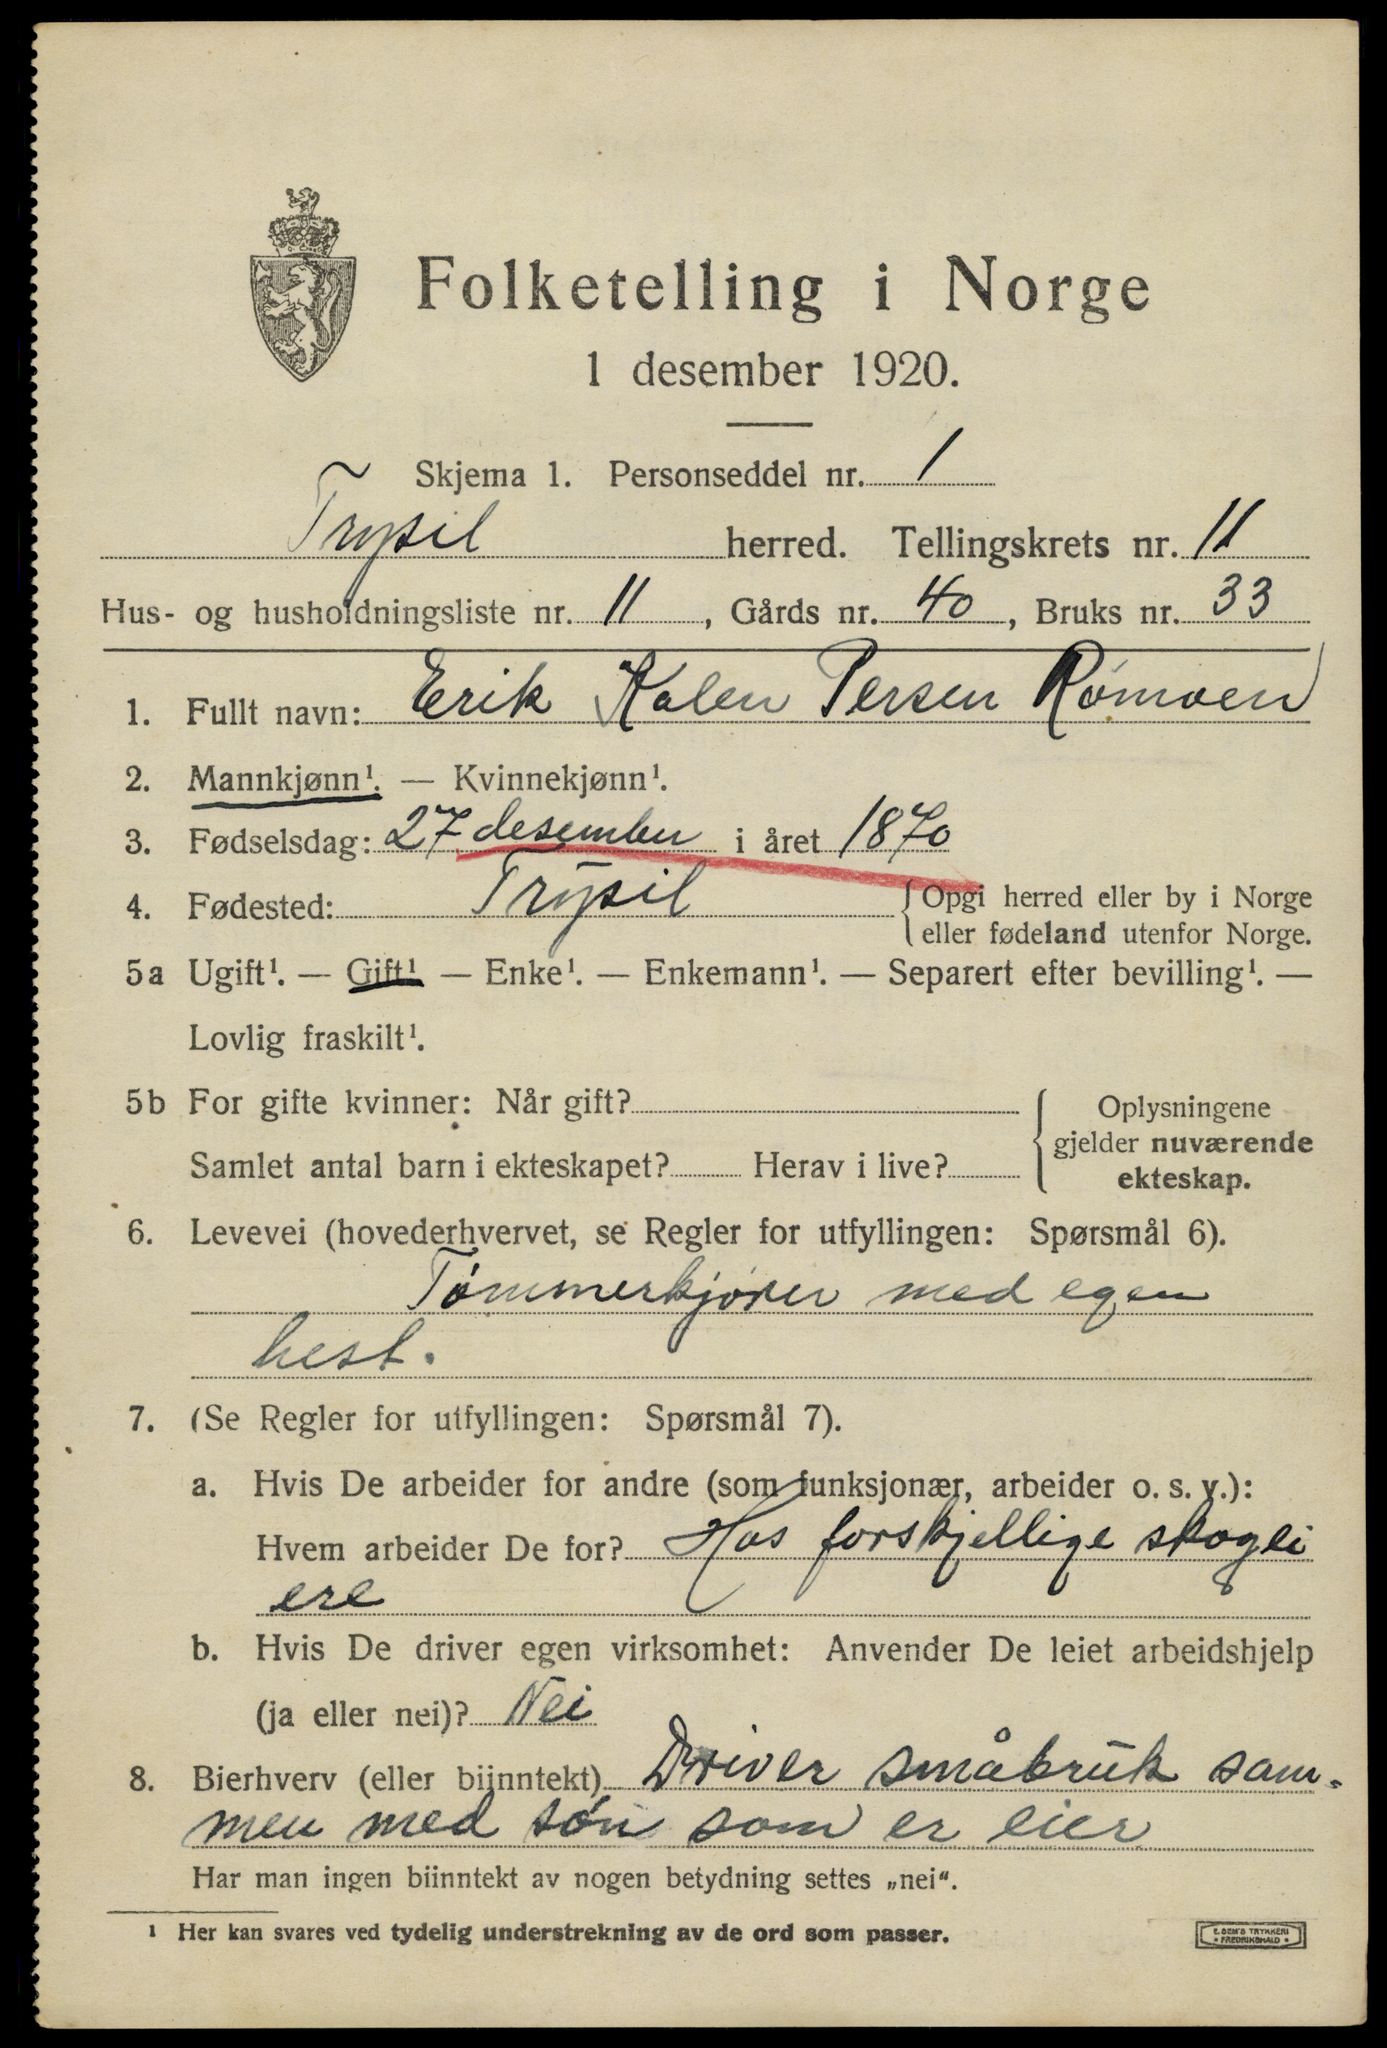 Folketelling i Norge
1 desember 1920.
Skjema 1. Personseddel nr. 1
Trysil herred. Tellingskrets nr. 11
Hus- og husholdningsliste nr. 11, Gårds nr. 40, Bruks nr. 33
1. Fullt navn: Erik Kalen Persen Rømoen
2. Mannkjønn¹. — Kvinnekjønn¹.
3. Fødselsdag: 27 desember i året 1870
4. Fødested: Trysil {Opgi herred eller by i Norge
eller fødeland utenfor Norge.
5a Ugift¹. — Gift¹ — Enke¹. — Enkemann¹. — Separert efter bevilling¹. —
Lovlig fraskilt¹.
5b For gifte kvinner: Når gift?
Samlet antal barn i ekteskapet? Herav i live?
{Oplysningene
gjelder nuværende
ekteskap.
6. Levevei (hovederhvervet, se Regler for utfyllingen: Spørsmål 6).
Tømmerkjører med egen
hest.
7. (Se Regler for utfyllingen: Spørsmål 7).
a. Hvis De arbeider for andre (som funksjonær, arbeider o. s. v.):
Hvem arbeider De for? Hos forskjellige skogei
ere
b. Hvis De driver egen virksomhet: Anvender De leiet arbeidshjelp
(ja eller nei)? Nei
8. Bierhverv (eller biinntekt) Driver småbruk sam-
men med søn som er eier
Har man ingen biinntekt av nogen betydning settes „nei“.
1 Her kan svares ved tydelig understrekning av de ord som passer.
E. SEM'S TRYKKERI
• FREDRIKSHALD •